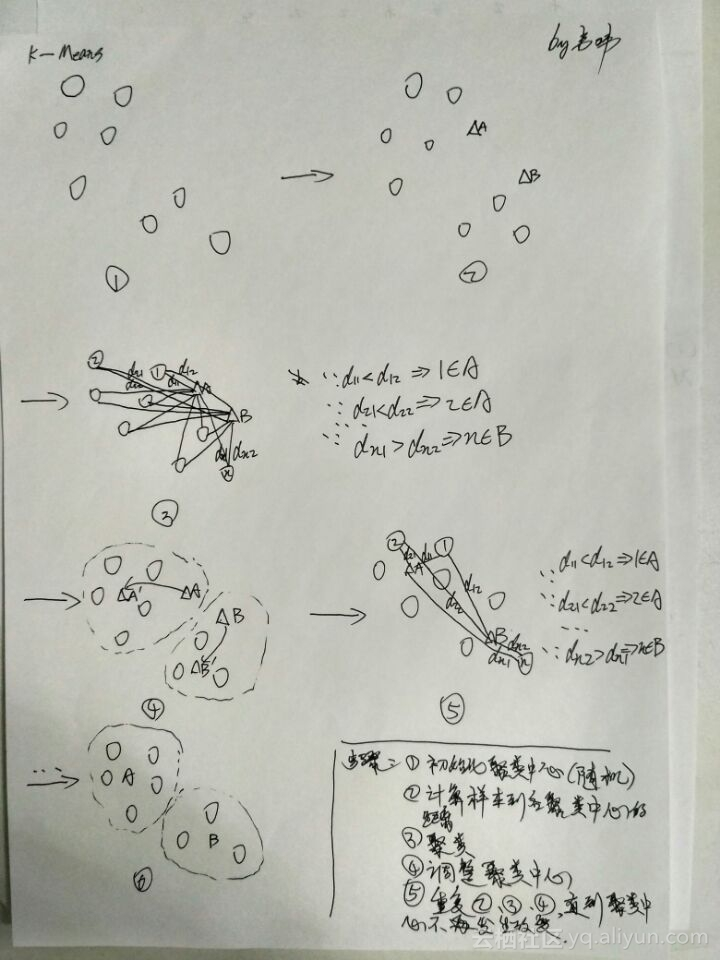 K-Means
by
①
A
B
②
② ① d12
d21 d11 A
d22
B
dn1 dn2
n
③
∵ d11<d12 ⇒ 1∈A
∵ d21<d22 ⇒ 2∈A
……
∵ dn1>dn2 ⇒ n∈B
A' A
B
B'
④
② ①
d21 d11
A
d12
d22
B dn2
dn1 n
⑤
∵ d11<d12 ⇒ 1∈A
∵ d21<d22 ⇒ 2∈A
……
∵ dn2>dn1 ⇒ n∈B
...
A
B
⑥
步骤：① 初始化聚类中心(随机)
② 计算样本到各聚类中心的
距离
③ 聚类
④ 调整聚类中心
⑤ 重复②、③、④，直到聚类中
心不再发生改变.
云栖社区 yq.aliyun.com